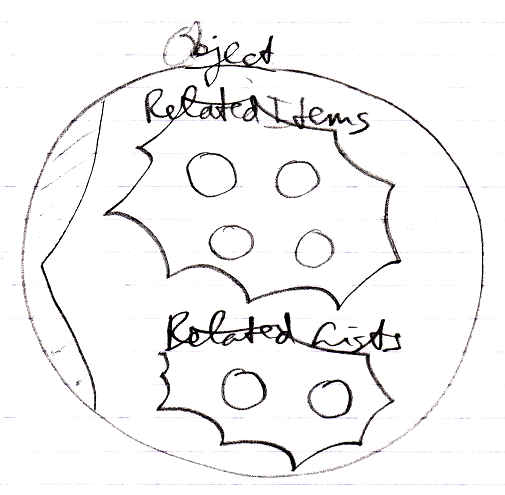 Object
Related Items
Related Lists